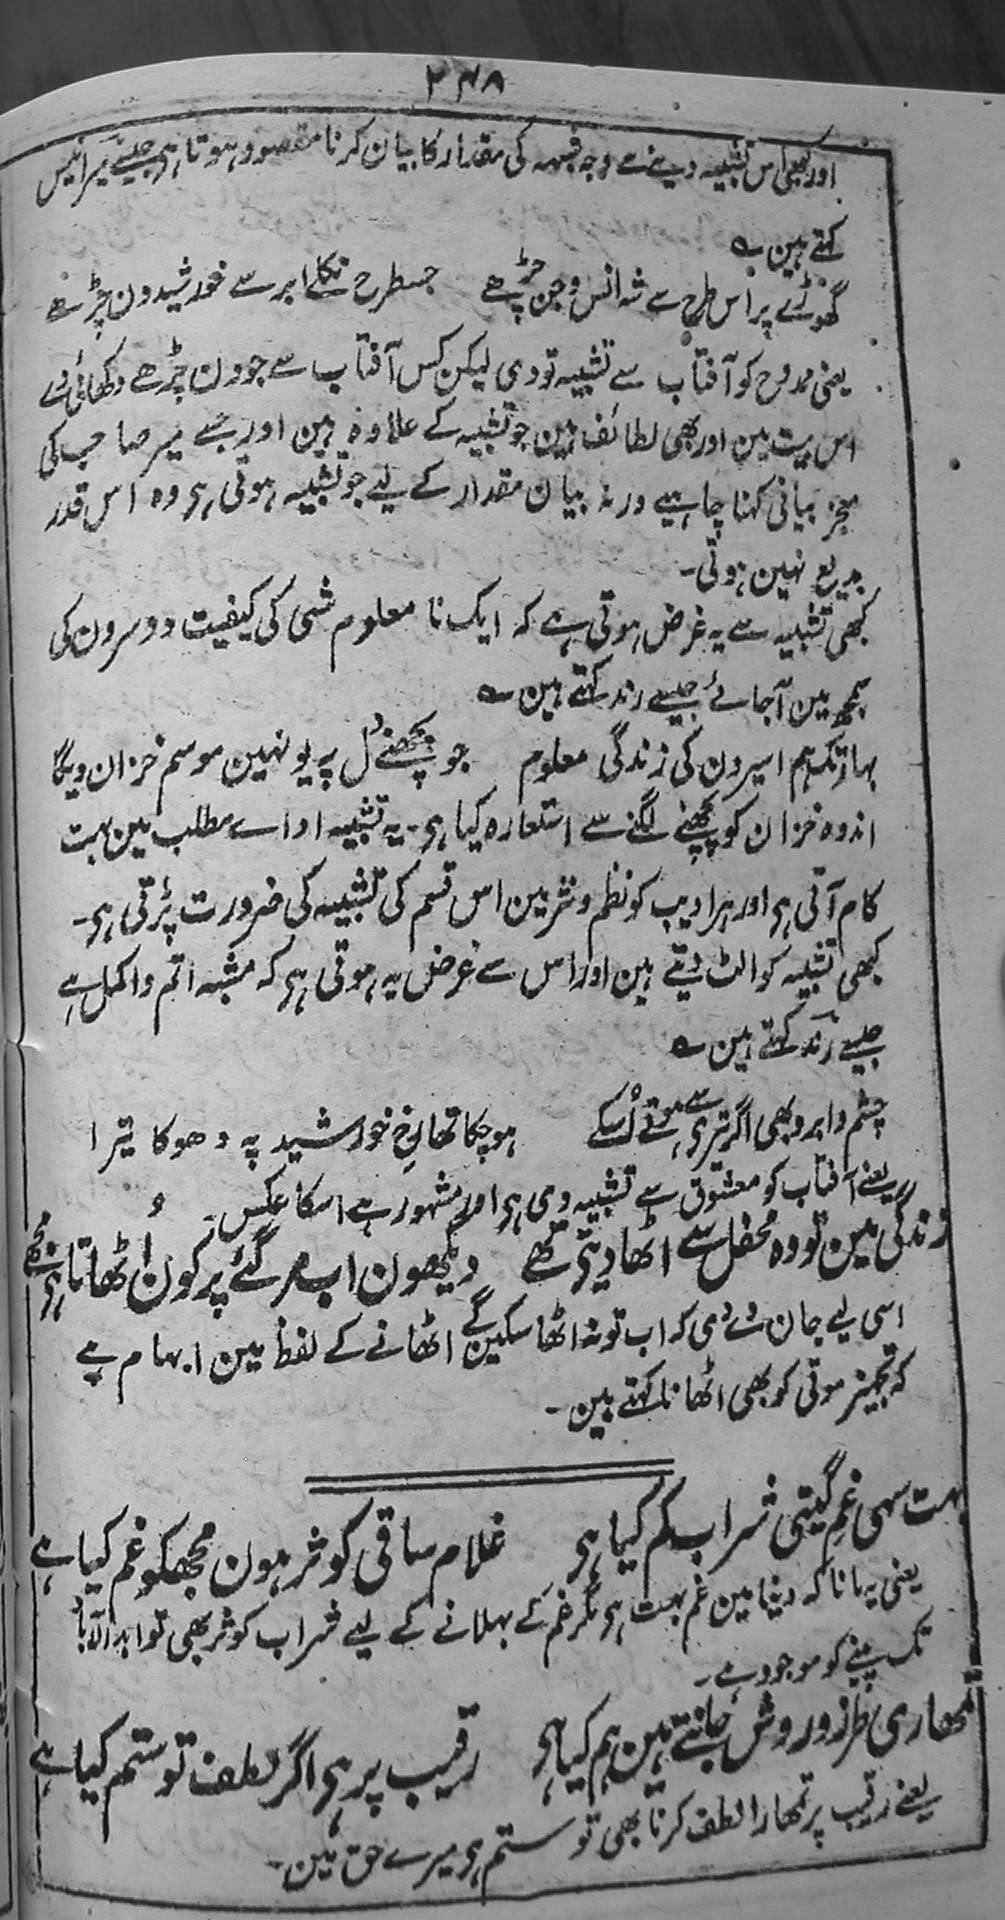 ۲۴۸
اور کبھی اس تشبیہ دینے سے وجہ شبہہ کی مقدار کا بیان کرنا مقصود ہوتا ہی جیسے میر انیس
کہتے ہین ؎
گھوڑے پر اس طرح سے شہ انس و جن چڑھے جسطرح نکلے ابر سے خورشید دن چڑھے
یعنی ممدوح کو آفتاب سے تشبیہ تو دی لیکن کس آفتاب سے جو دن چڑھے دکھائی دے
اس بیت مین اور بھی لطائف ہین جو تشبیہ کے علاوہ ہین اور جسے میر صاحب کی
معجز بیانی کہنا چاہیے ورنہ بیان مقدار کے لیے جو تشبیہ ہوتی ہی وہ اس قدر
بدیع نہین ہوتی۔
کبھی تشبیہ سے یہ غرض ہوتی ہے کہ ایک نا معلوم شی کی کیفیت دوسرون کی
سمجھ مین آجائے جیسے رند کہتے ہین ؎
بہار تک ہم اسیرون کی زندگی معلوم جو پچھنے دل پہ یونہین موسم خزان دیگا
اندوہ خزان کو پچھنے لگنے سے استعارہ کیا ہی۔ یہ تشبیہ اداے مطلب مین بہت
کام آتی ہی اور ہر ادیب کو نظم و نثر مین اس قسم کی تشبیہ کی ضرورت پڑتی ہی۔
کبھی تشبیہ کو الٹ دیتے ہین اور اس سے غرض یہ ہوتی ہی کہ مشبہ اتم و اکمل ہے
جیسے رند کہتے ہین ؎
چشم و ابرو بھی اگر تیری سے ہوتے اُسکے ہو چکا تھا رخ خورشید پہ دھوکا تیرا
یعنے آفتاب کو معشوق سے تشبیہ دی ہی اور مشہور ہے اسکا عکس۔
زندگی مین تو وہ محفل سے اٹھا دیتے تھے دیکھون اب مر گئے پر کون اُٹھاتا ہی مجھے
اسی لیے جان دے دی کہ اب تو نہ اٹھا سکین گے اٹھانے کے لفظ مین ابہام ہے
کہ تجہیز موتی کو بھی اٹھانا کہتے ہین۔
بہت سہی غم گیتی شراب کم کیا ہی غلام ساقی کوثر ہون مجھکو غم کیا ہے
یعنی یہ مانا کہ دنیا مین غم بہت ہی مگر غم کے بہلانے کے لیے شراب کوثر بھی تو ابدالآباد
تک پینے کو موجود ہے۔
تمھاری طرز و روش جانتے ہین ہم کیا ہی رقیب پر ہی اگر لطف تو ستم کیا ہے
یعنے رقیب پر تمھارا لطف کرنا بھی تو ستم ہی میرے حق مین۔